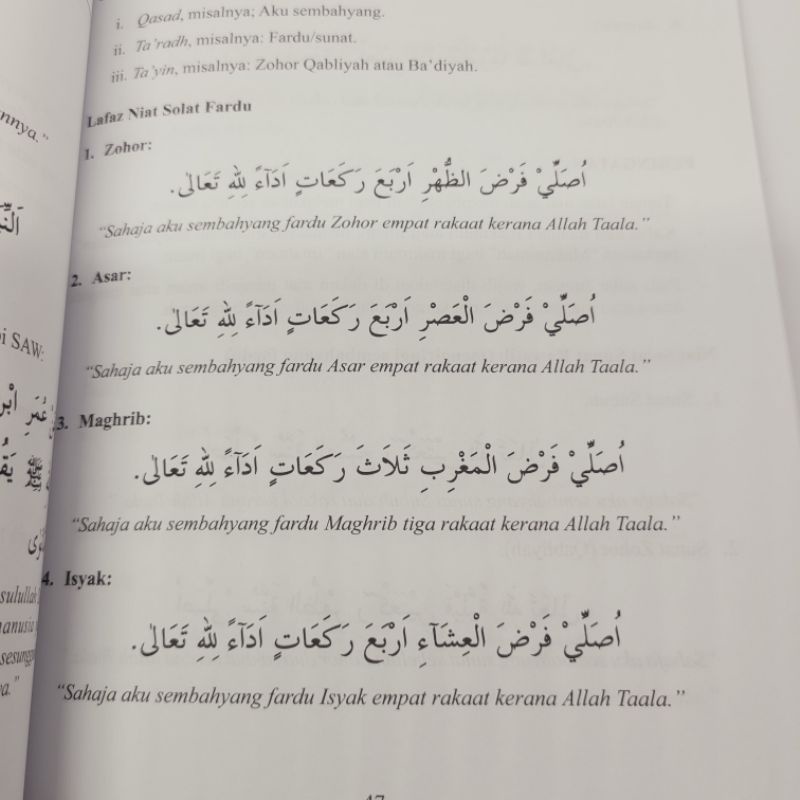 i. Qasad, misalnya; Aku sembahyang.
ii. Ta'radh, misalnya: Fardu/sunat.
iii. Ta'yin, misalnya: Zohor Qabliyah atau Ba'diyah.
Lafaz Niat Solat Fardu
1. Zohor:
اُصَلِّيْ فَرْضَ الظُّهْرِ اَرْبَعَ رَكَعَاتٍ اَدَآءً لِلّٰهِ تَعَالٰى.
“Sahaja aku sembahyang fardu Zohor empat rakaat kerana Allah Taala.”
2. Asar:
اُصَلِّيْ فَرْضَ الْعَصْرِ اَرْبَعَ رَكَعَاتٍ اَدَآءً لِلّٰهِ تَعَالٰى.
“Sahaja aku sembahyang fardu Asar empat rakaat kerana Allah Taala.”
3. Maghrib:
اُصَلِّيْ فَرْضَ الْمَغْرِبِ ثَلَاثَ رَكَعَاتٍ اَدَآءً لِلّٰهِ تَعَالٰى.
“Sahaja aku sembahyang fardu Maghrib tiga rakaat kerana Allah Taala.”
4. Isyak:
اُصَلِّيْ فَرْضَ الْعِشَآءِ اَرْبَعَ رَكَعَاتٍ اَدَآءً لِلّٰهِ تَعَالٰى.
“Sahaja aku sembahyang fardu Isyak empat rakaat kerana Allah Taala.”